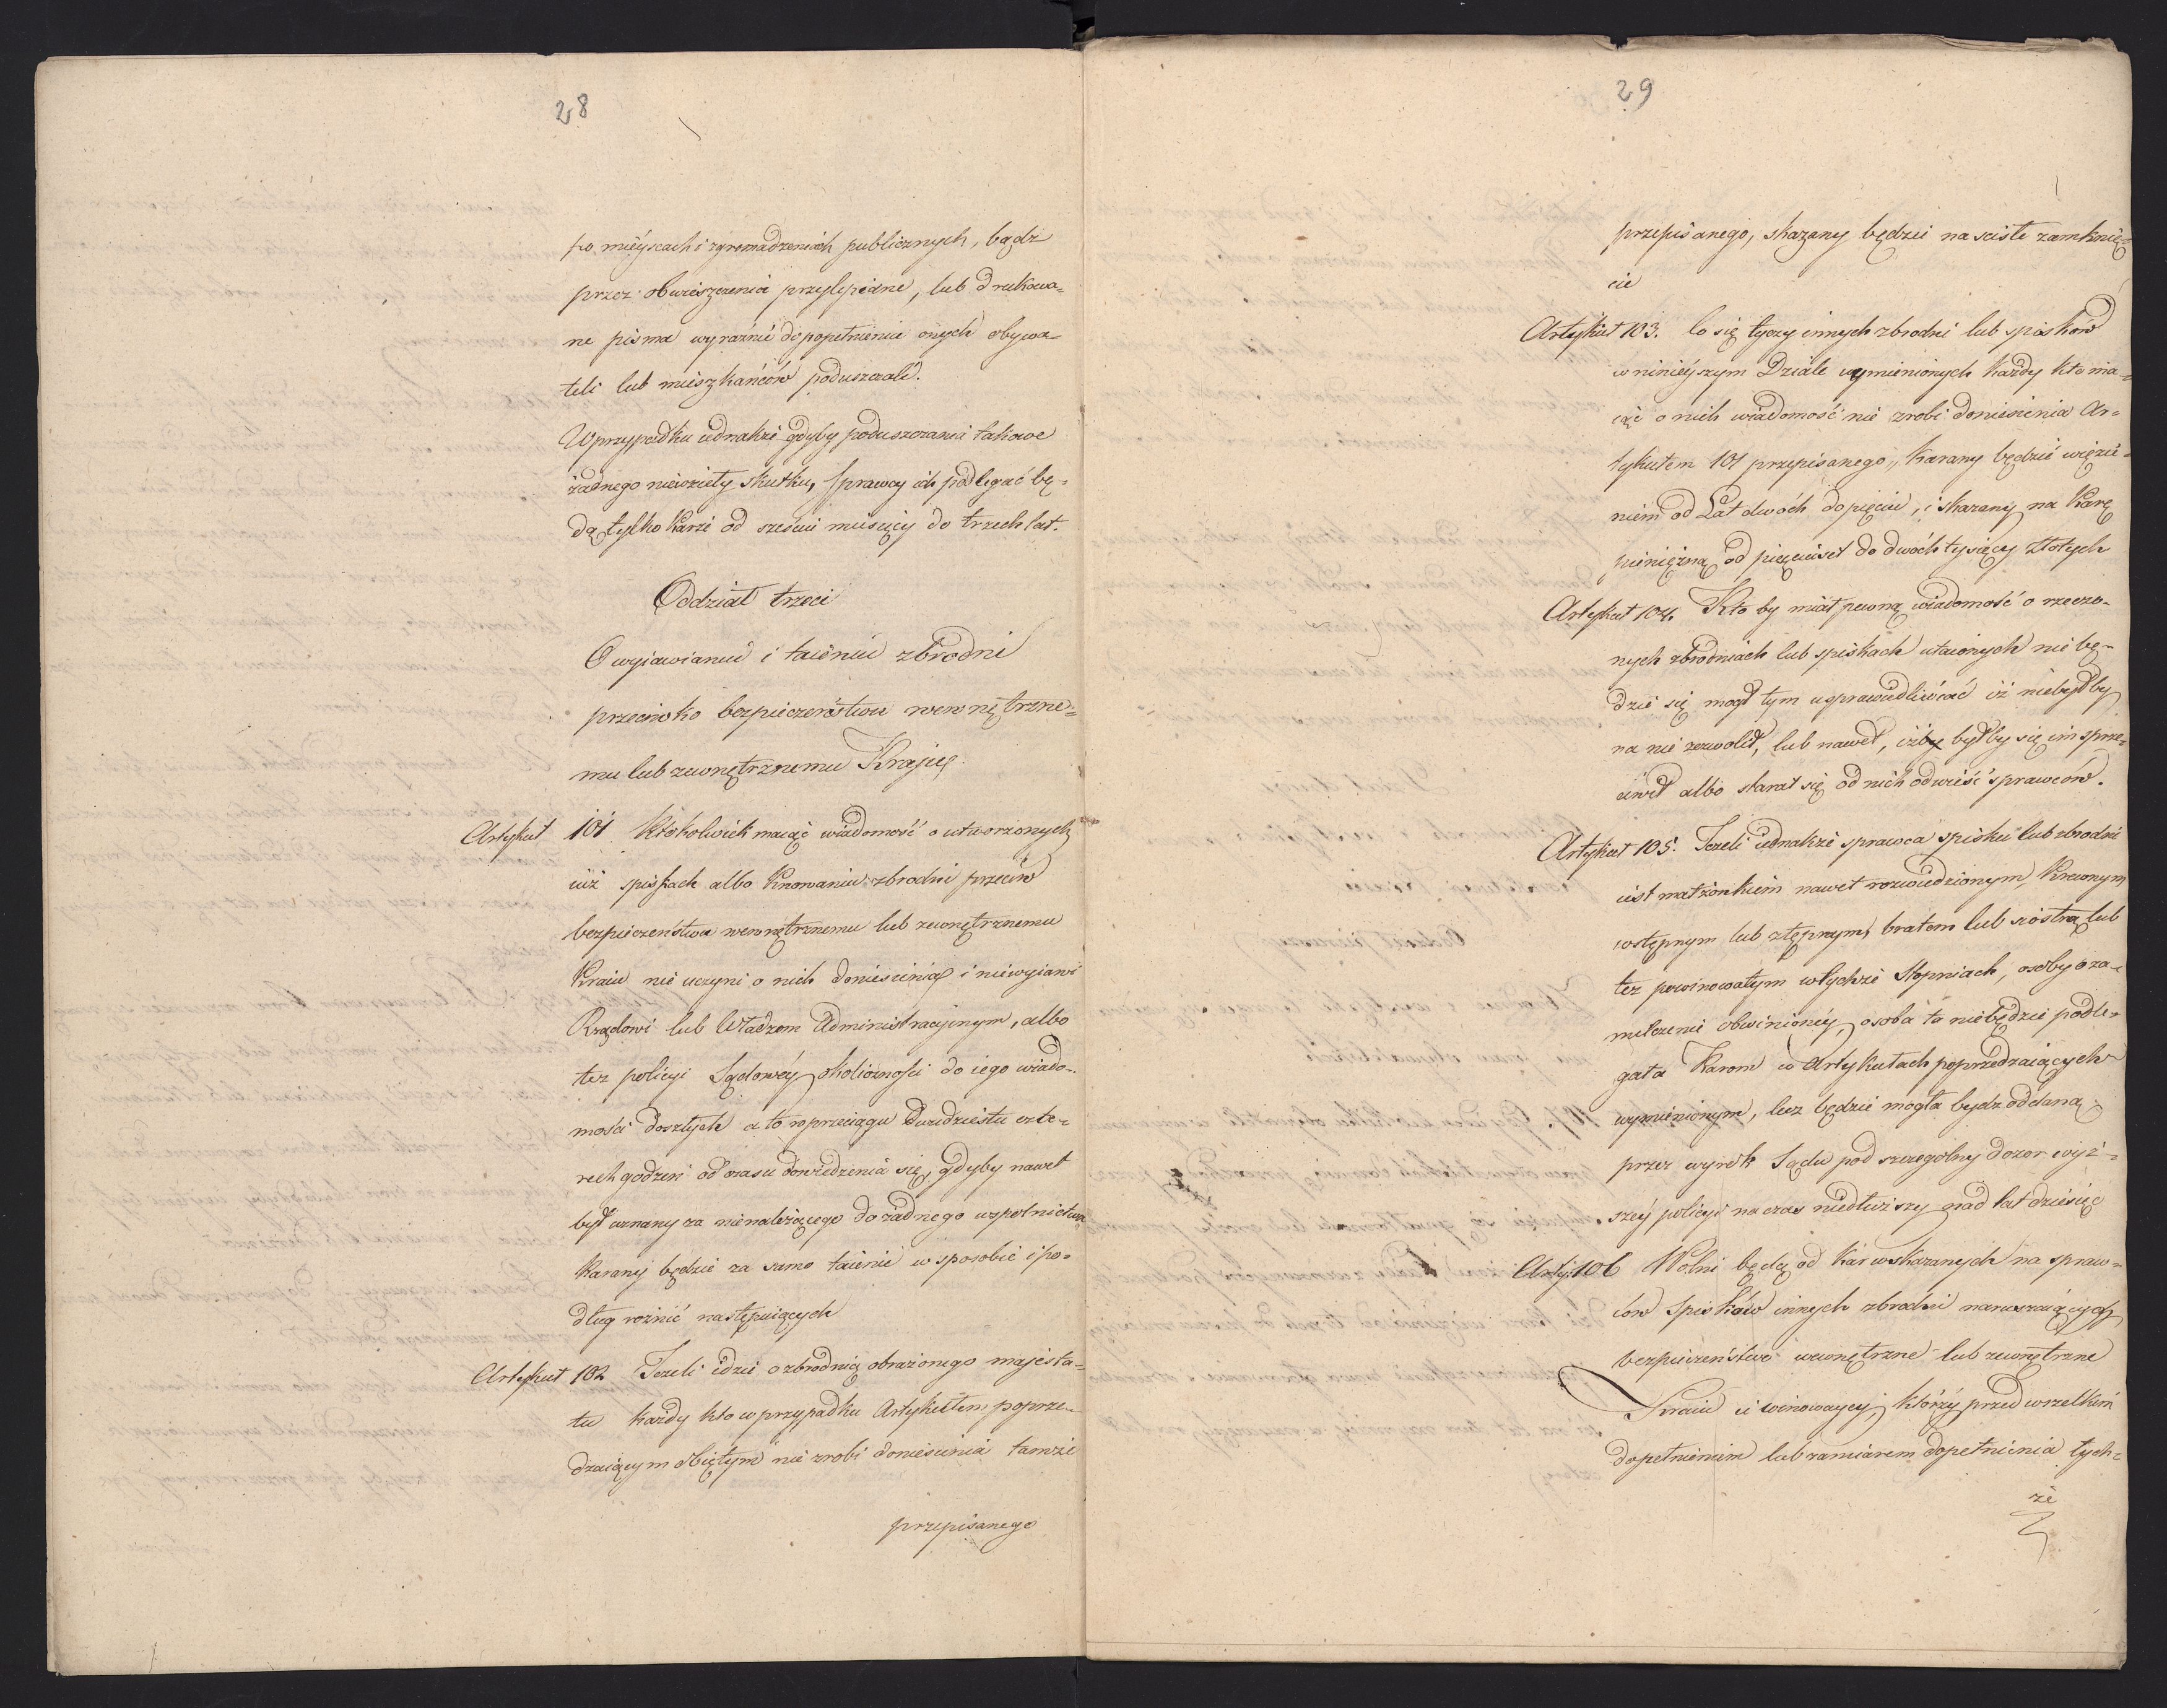 28
po mieyscach i zgromadzeniach publicznych, bądz
przez obwieszczenia przylepiane, lub drukowa=
ne pisma wyraźnie do popełnienia onych obywa=
teli lub mieszkańców poduszczali.
W przypadku iednakże gdyby poduszczania takowe
żadnego nie wzięły skutku, sprawcy ich podlegać bę=
dą tylko karze od sześciu miesięcy do trzech lat.
Oddział trzeci
O wyiawianiu i taieniu zbrodni
przeciwko bezpieczeństwu wewnętrzne=
mu lub zewnętrznemu Kraju
Artykuł 101 Ktokolwiek maiąc wiadomość o utworzonych
iuż spiskach albo knowaniu zbrodni przeciw
bezpieczeństwu wewnętrznemu lub zewnętrznemu
Kraiu nie uczyni o nich doniesienia i nie wyiawi
Rządowi lub Władzom Administracyinym, albo
też policyi Sądowéy okoliczności do iego wiado=
mości doszłych a to w przeciągu dwudziestu czte=
rech godzin od czasu dowiedzenia się, gdyby nawet
był uznany za nienależącego do żadnego wspolnictwa
karany będzie za samo taienie w sposobie i po=
dług rożnic następuiących
Artykuł 102 Jeżeli idzie o zbrodnią obrażonego majesta=
tu każdy kto w przypadku Artykułem poprze=
dzaiącym obiętym nie zrobi doniesienia tamże
przepisanego
29
przepisanego, skazany będzie na scisłe zamknię=
cie
Artykuł 103. Co się tyczy innych zbrodni lub spisków
w ninieyszym Dziale wymienionych każdy kto ma=
iąc o nich wiadomość nie zrobi doniesienia Ar=
tykułem 101 przepisanego, karany będzie więzie=
niem od Lat dwóch do pięciu, i skazany na karę
pieniężną od pięciuset do dwóch tysięcy złotych
Artykuł 104. Kto by miał pewną wiadomość o rzeczo=
nych zbrodniach lub spiskach utaionych nie bę=
dzie się mogł tym usprawiedliwiać iż nie był by
na nie zezwolił, lub nawet, iżby był by się im sprze=
ciwił albo starał się od nich odwieść sprawców.
Artykuł 105. Jeżeli iednakże sprawca spisku lub zbrodni
iest małżonkiem nawet rozwiedzionym, krewnym
wstępnym lub zstępnym, bratem lub siostrą lub
też powinowatym w tychże stopniach, osoby o za=
milczenie obwinionéy, osoba ta nie będzie podle=
gała karom w Artykułach poprzedzaiących
wymienionym, lecz będzie mogła bydz oddaną
przez wyrok Sądu pod szczegolny dozor wyż=
széy policyi na czas niedłuższy nad lat dziesięć
Arty: 106 Wolni będą od kar wskazanych na spraw=
ców spisków innych zbrodni naruszaiących
bezpieczeństwo wewnętrzne lub zewnętrzne
Kraiu ci winowaycy, którzy przed wszelkiém
dopełnieniem lub zamiarem dopełnienia tych=
że